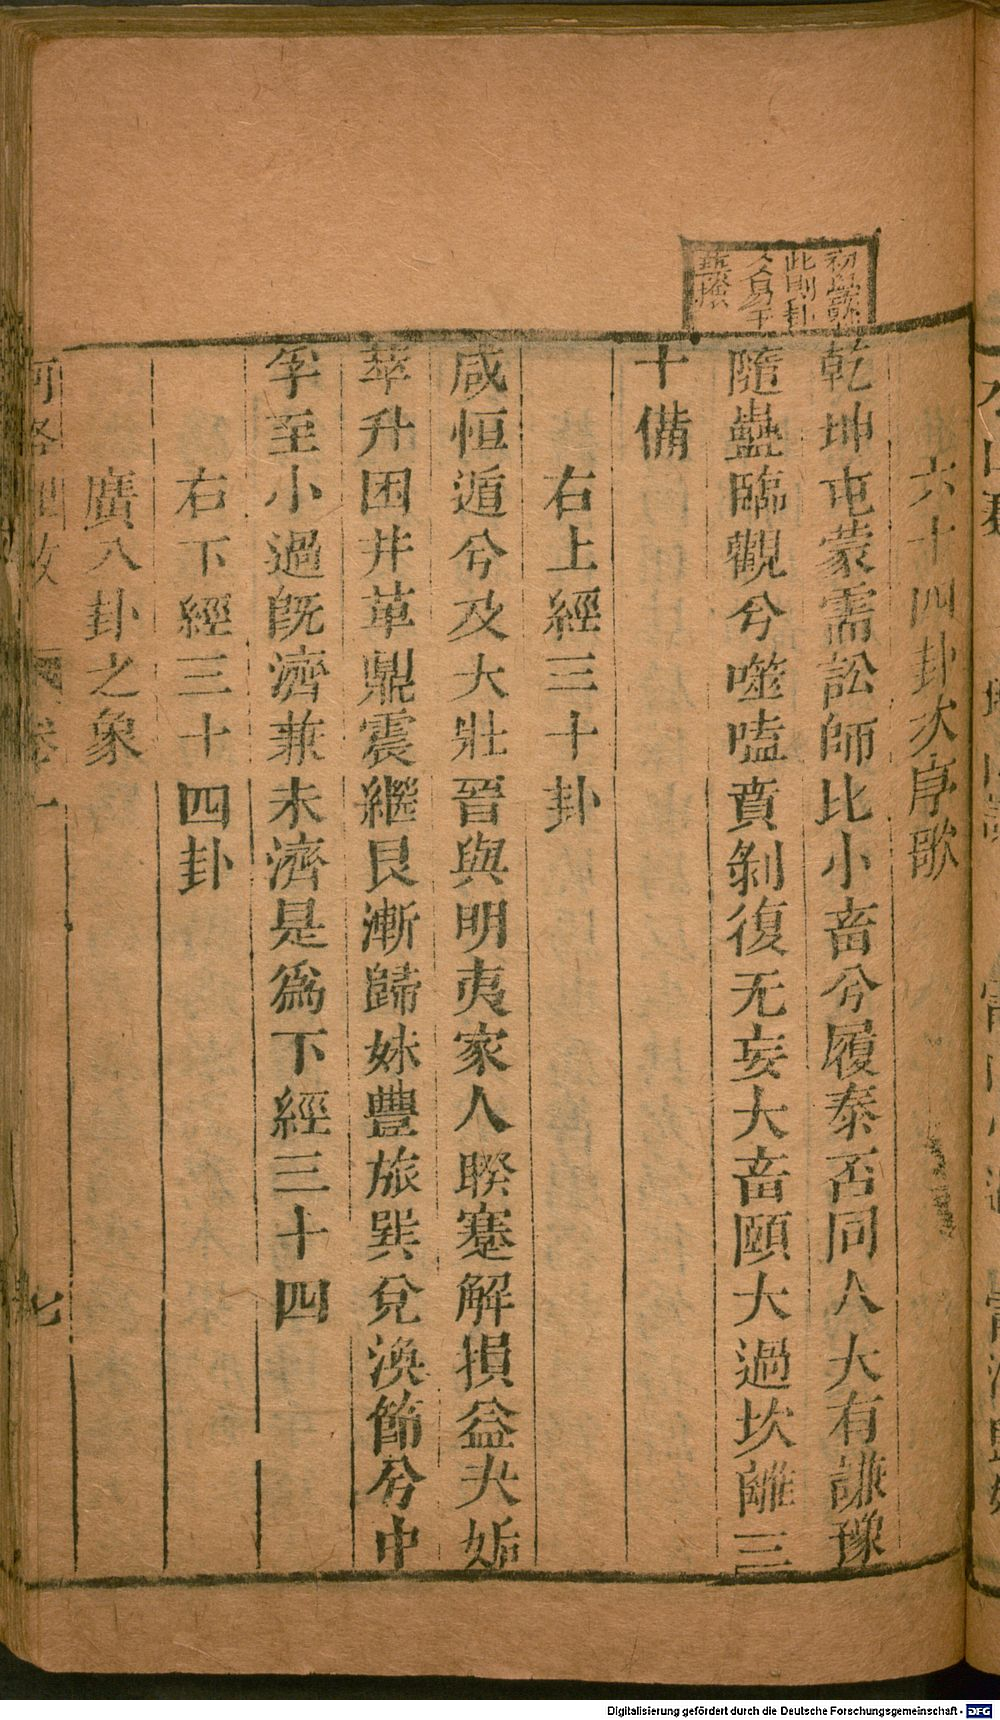 六十四卦次序歌
乾坤屯蒙需訟師比小畜兮履泰否同人大有謙豫
隨蠱臨觀兮噬嗑賁剝復无妄大畜頤大過坎離三
十備
右上經三十卦
咸恒遁兮及大壯晉與明夷家人睽蹇解損益夬姤
萃升困井革鼎震繼艮漸歸妹豐旅巽兌渙節兮中
孚至小過旣濟兼未濟是爲下經三十四
右下經三十四卦
廣八卦之象
卷一
七
此則卦
Digitalisierung gefördert durch die Deutsche Forschungsgemeinschaft - DFG